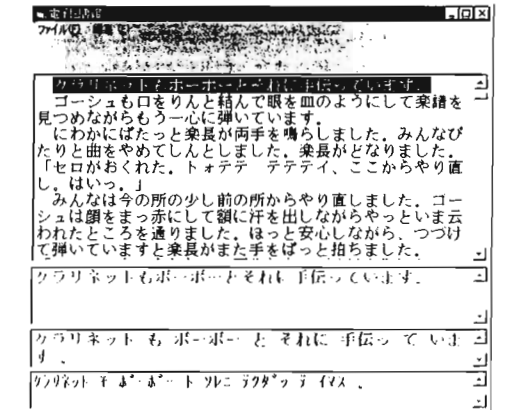 ファイル(F) 編集(E)
クラリネットもボーボーとそれに手伝っています。
ゴーシュも口をりんと結んで眼を皿のようにして楽譜を
見つめながらもう一心に弾いています。
にわかにぱたっと楽長が両手を鳴らしました。みんなぴ
たりと曲をやめてしんとしました。楽長がどなりました。
「セロがおくれた。トォテテ テテテイ、ここからやり直
し。はいっ。」
みんなは今の所の少し前の所からやり直しました。ゴー
シュは顔をまっ赤にして額に汗を出しながらやっといま云
われたところを通りました。ほっと安心しながら、つづけ
て弾いていますと楽長がまた手をぱっと拍ちました。
クラリネットもボーボーとそれに手伝っています。
クラリネット も ボーボー と それに 手伝っ て いま
す 。
クラリネット モ ボーボー ト ソレニ テツダッ テ イマス 。